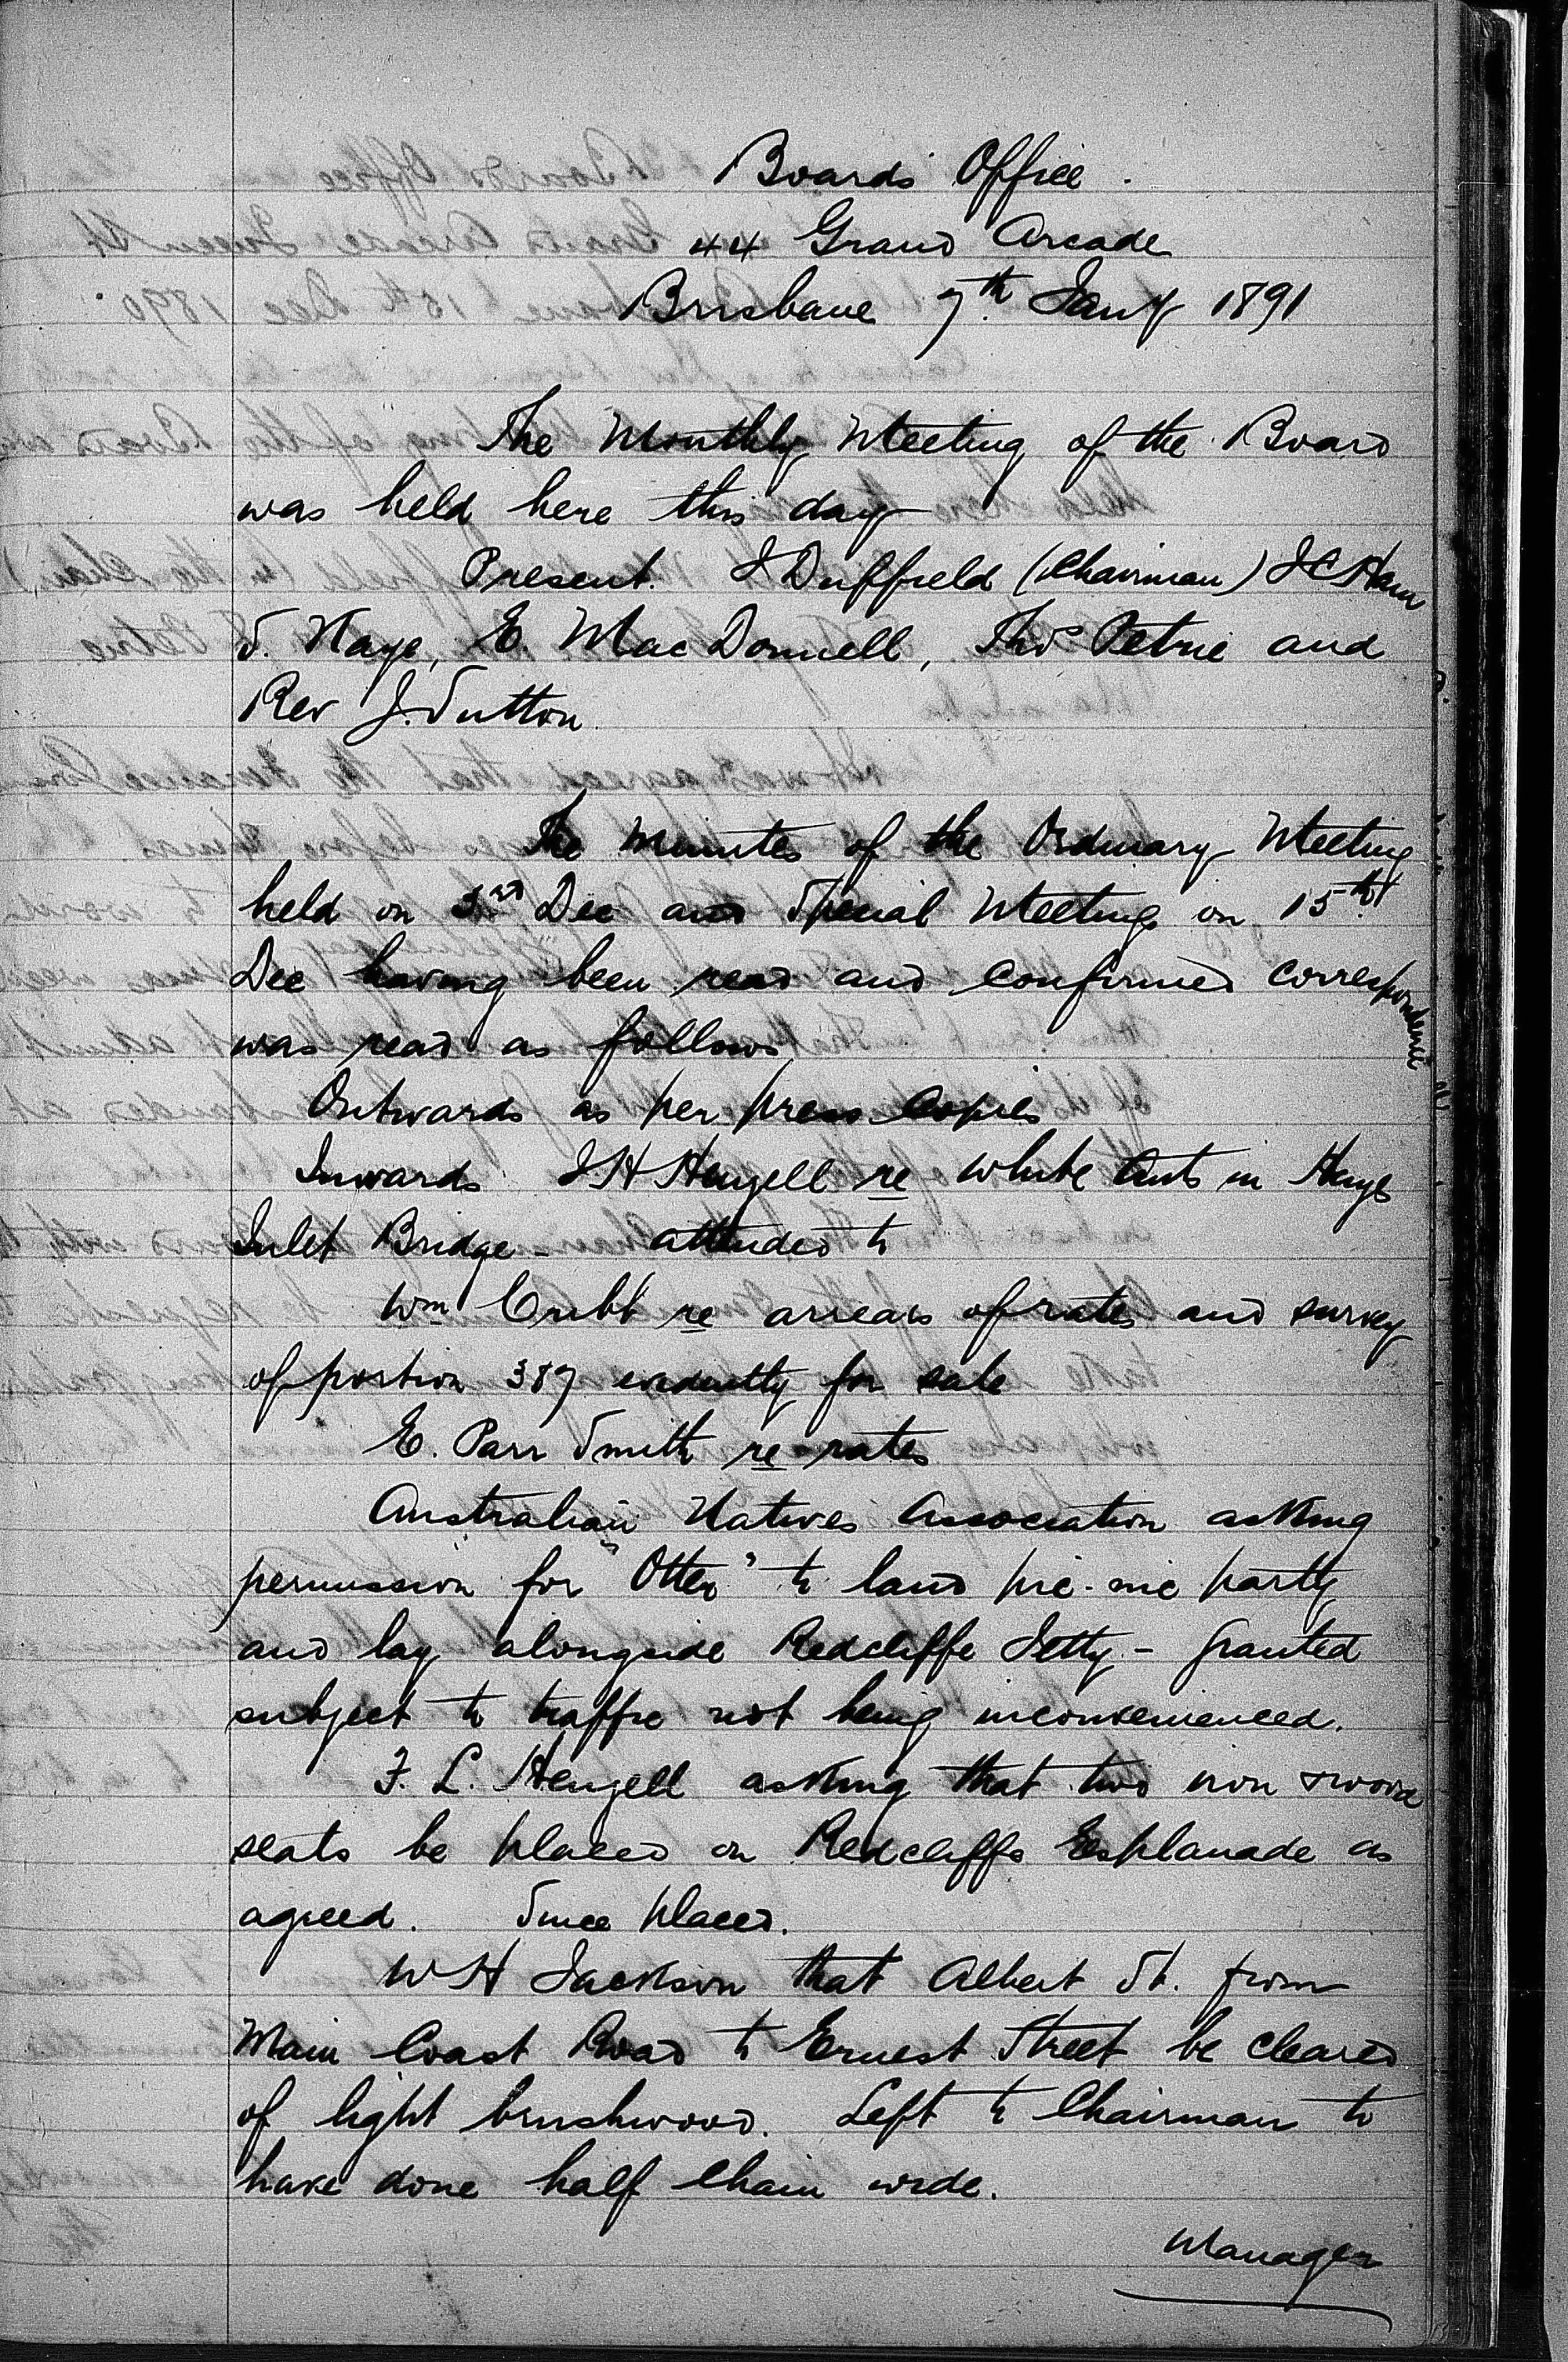 Boards Office
44 Grand Arcade
Brisbane 7th Jany 1891
The Monthly Meeting of the Board
was held here this day
Present. J Duffield (Chairman) J C Ham
S. Kaye, E. MacDonnell, Thos Petrie and
Rev J. Sutton.
The minutes of the Ordinary Meeting
held on 3rd Dec and Special Meeting on 15th
Dec having been read and confirmed correspondence
was read as follows
Outwards as per press copies
Inwards J H Hengell re white ants in Hays
Inlet Bridge - attended to
Wm Cribb re arrears of rates and survey
of portion 387 evidently for sale
E. Parr Smith re rates
Australian Natives Association asking
permission for "Otter" to land pic-nic party
and lay alongside Redcliffe Jetty - Granted
subject to traffic not being inconvenienced.
F. L. Hengell asking that two iron & wood
seats be placed on Redcliffe Esplanade as
agreed. Since placed.
W H Jackson that Albert St. from
Main Coast Road to Ernest Street be cleared
of light brushwood. Left to Chairman to
have done half chain wide.
Manager